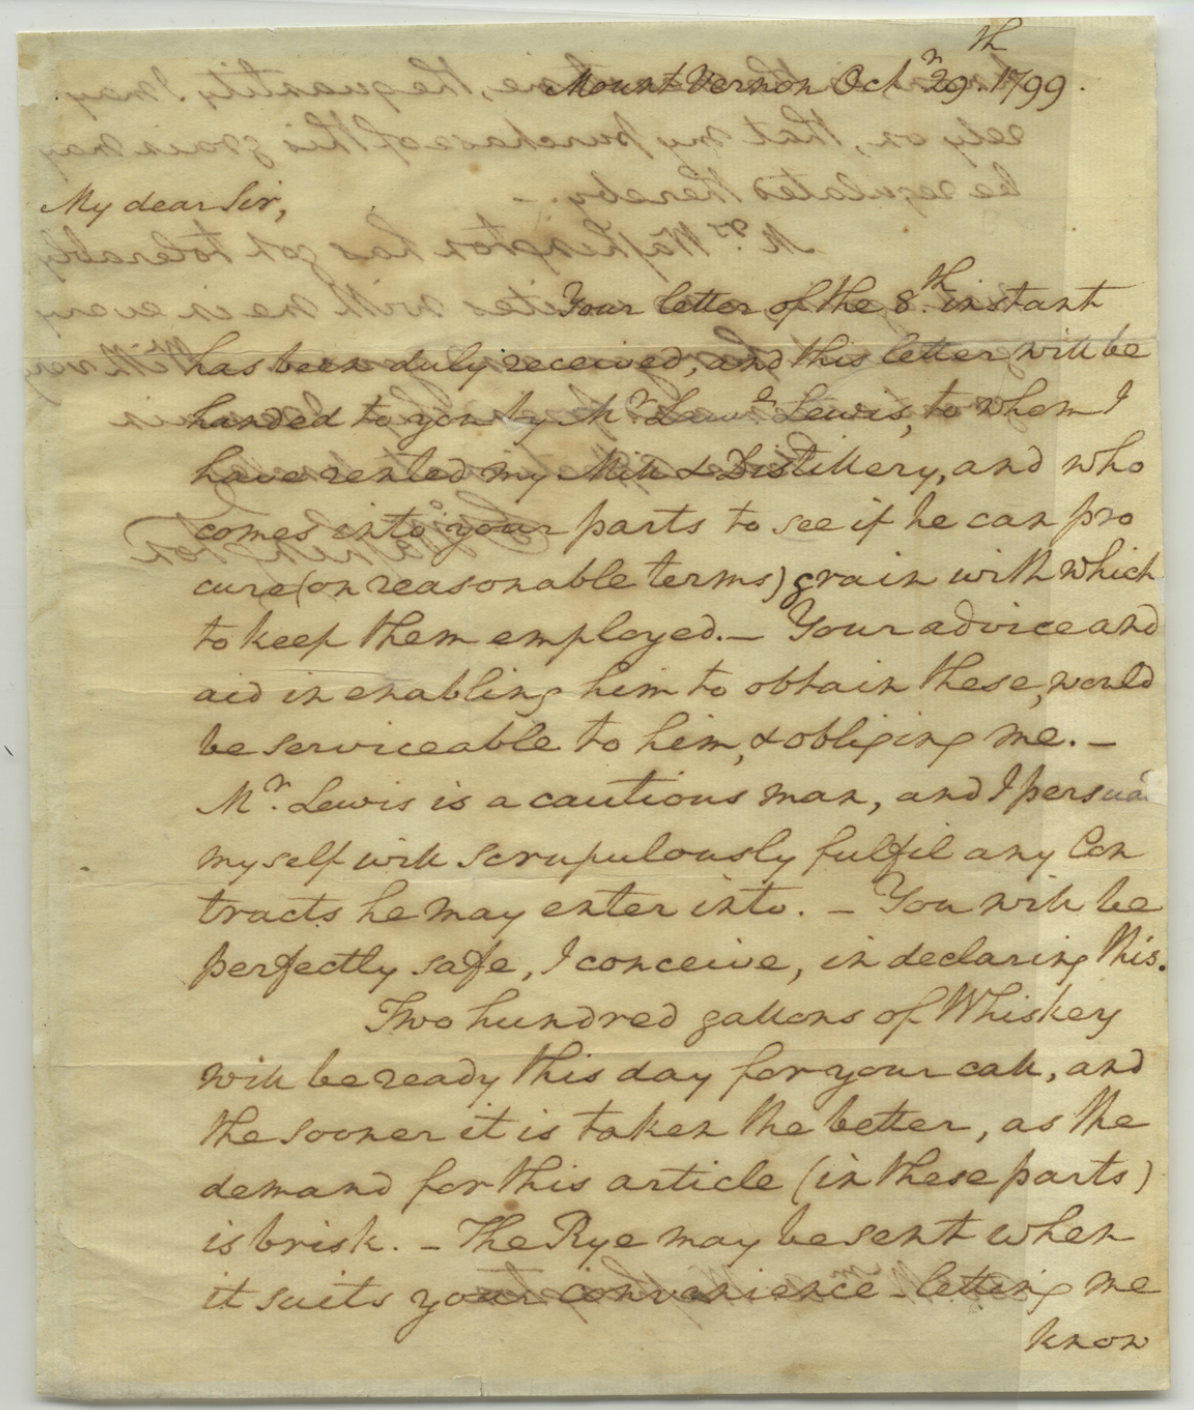 Mount Vernon Octr 29th 1799.
My dear Sir,
Your letter of the 8th instant
has been duly received, and this letter will be
handed to you by Mr Lawe Lewis, to whom I
have rented my Mill & Distillery, and who
comes into your parts to see if he can pro
cure (on reasonable terms) grain with which
to keep them employed. — Your advice and
aid in enabling him to obtain these, would
be serviceable to him, & obliging me. —
Mr. Lewis is a cautious man, and I persua
myself will scrupulously fulfil any Con
tracts he may enter into. — You will be
perfectly safe, I conceive, in declaring this.
Two hundred gallons of Whiskey
will be ready this day for your call, and
the sooner it is taken the better, as the
demand for this article (in these parts)
is brisk. — The Rye may be sent when
it suits your convenience — letting me
know